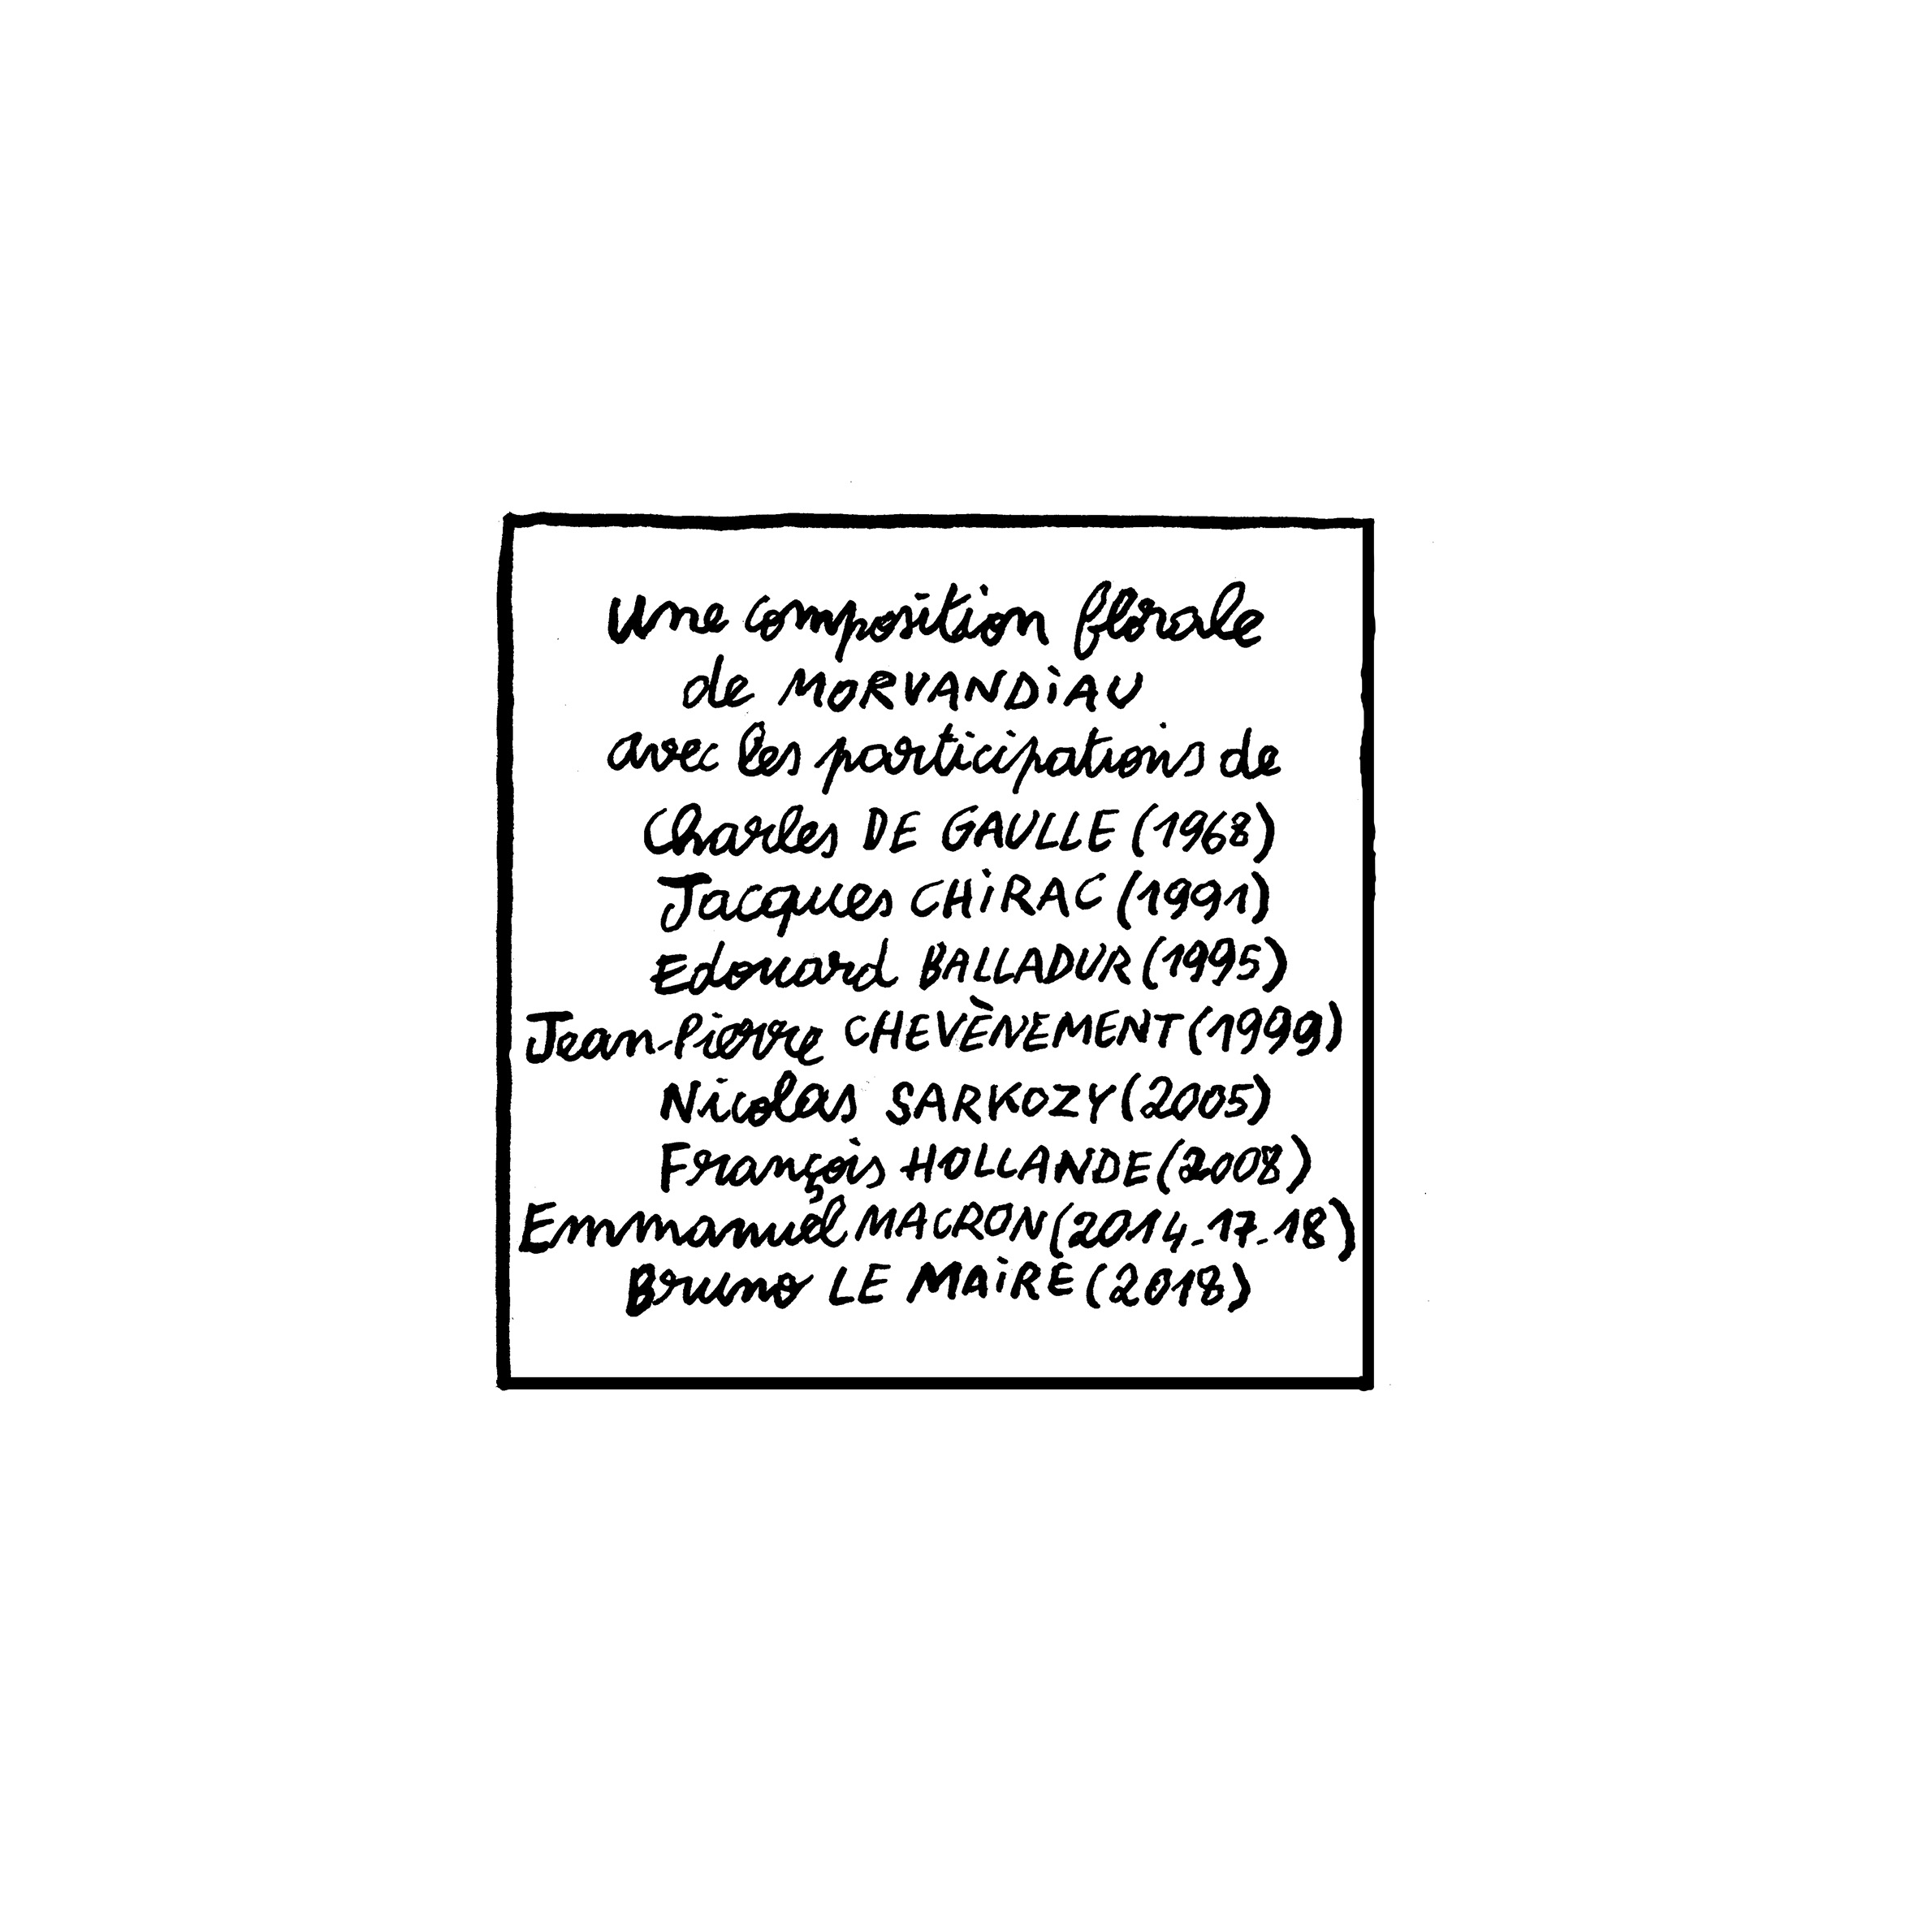 Une composition florale
de MORVANDiAU
avec les participations de
Charles DE GAULLE (1968)
Jacques CHiRAC (1991)
Edouard BALLADUR (1995)
Jean-Pierre CHEVÈNEMENT (1999)
Nicolas SARKOZY (2005)
François HOLLANDE (2008)
Emmanuel MACRON (2014-17-18)
Bruno LE MAiRE (2018)